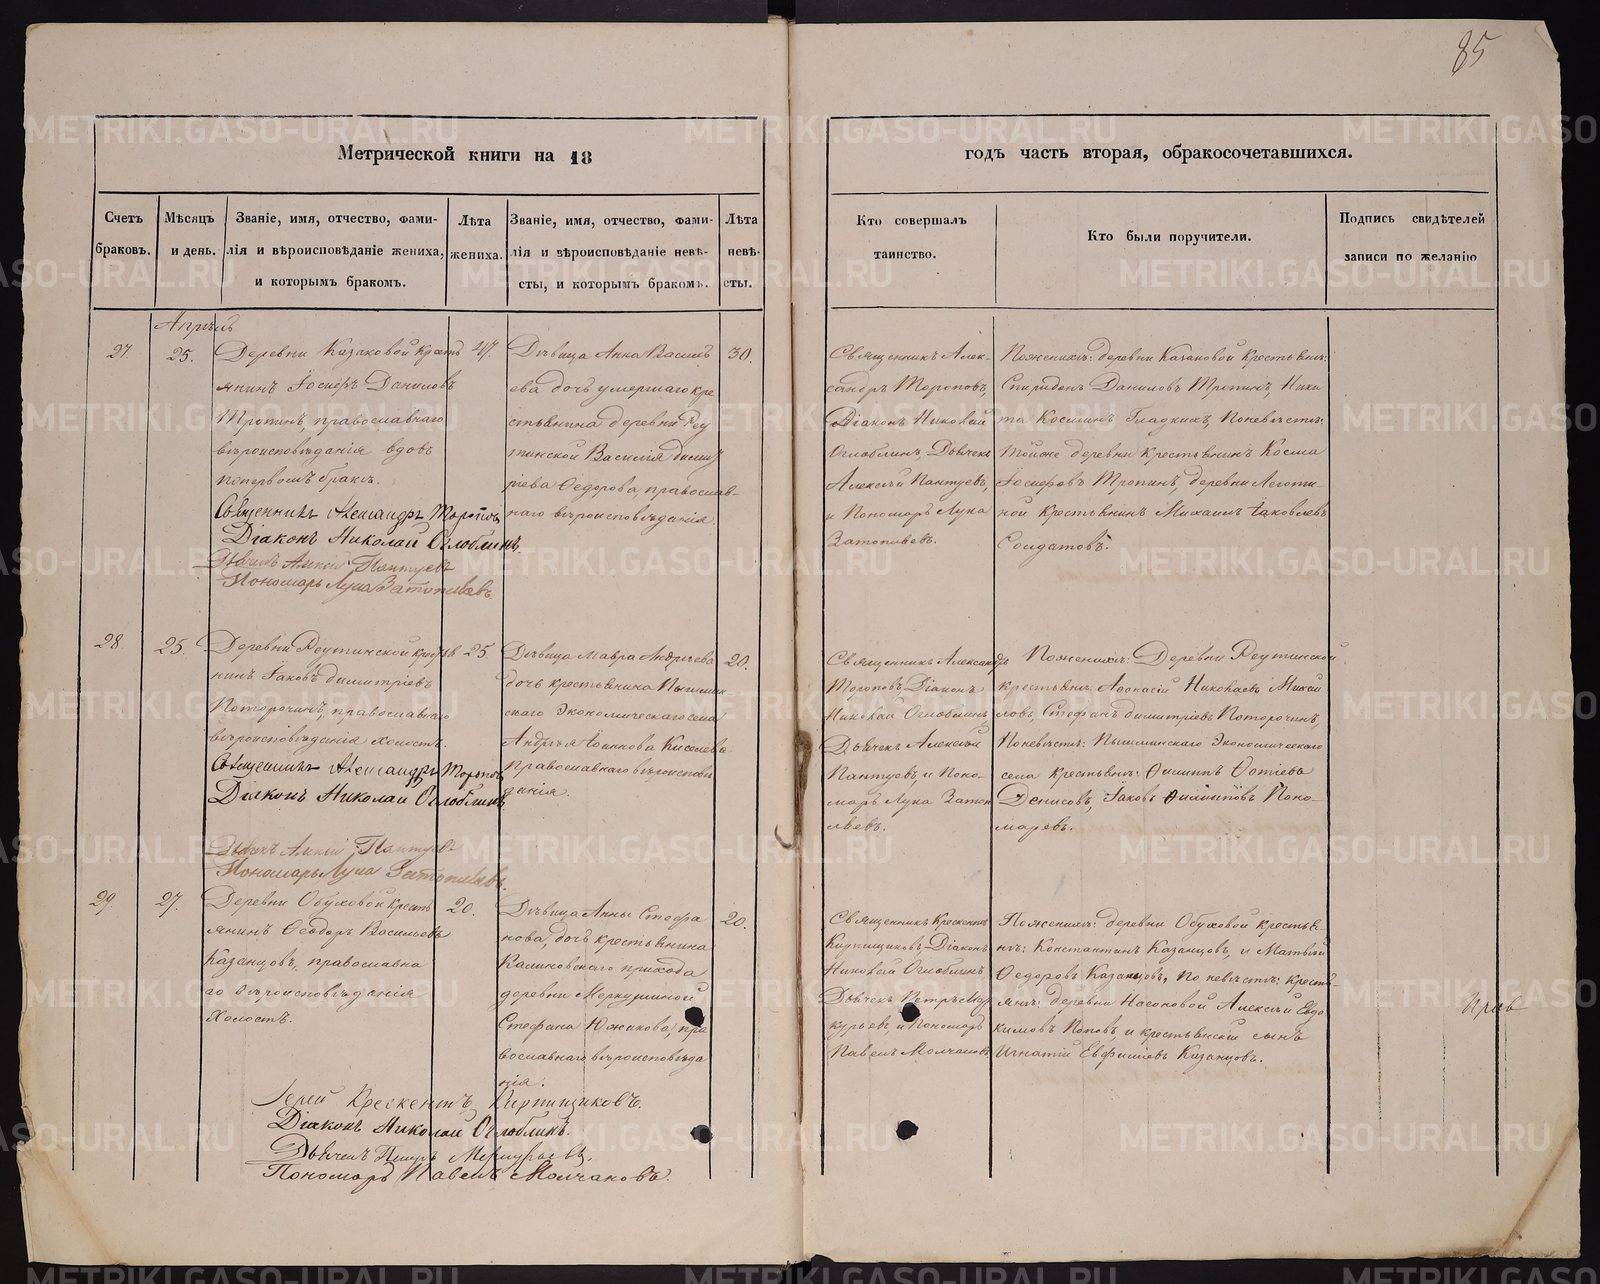 85
Метрической книги на 18
годъ часть вторая, обракосочетавшихся.
Счетъ браковъ.
Мѣсяцъ и день.
Званіе, имя, отчество, фами-
лія и вѣроисповѣданіе жениха,
и которымъ бракомъ.
Лѣта жениха.
Званіе, имя, отчество, фами-
лія и вѣроисповѣданіе невѣ-
сты, и которымъ бракомъ.
Лѣта невѣ-
сты.
Кто совершалъ
таинство.
Кто были поручители.
Подпись свидѣтелей
записи по желанію
Апрѣль
27.
25.
Деревни Казаковой кресть
янинъ Іосифъ Даниловъ
Тропинъ, православнаго
вѣроисповѣданія вдовъ
попервомъ бракѣ.
47.
Дѣвица Анна Василь
ева дочь умершаго кре
стьянина деревни Реу
тинской Василія Димит
ріева Федорова, православ-
наго вѣроисповѣданія.
30.
Священникъ Алек-
сандръ Тороповъ,
Діаконъ Николай
Оглоблинъ, Дьячекъ
Алексѣй Пантуевъ,
и Пономарь Лука
Затопляевъ.
Поженихѣ: деревни Казаковой крестьяне:
Спиридонъ Даниловъ Тропинъ, Ники
та Косминъ Гладкихъ, Поневѣстѣ:
тойже деревни крестьянинъ Косма
Іосифовъ Тропинъ, деревни Леготи-
ной крестьянинъ Михаилъ Іаковлевъ
Солдатовъ.
Священникъ Александръ Торопов
Діаконъ Николай Оглоблинъ.
Дьячекъ Алексій Пантуевъ
Пономарь Лука Затопляевъ.
28.
25.
Деревни Реутинской крестья
нинъ Іаковъ Димитріевъ
Поторочинъ, православнаго
вѣроисповѣданія холостъ.
25.
Дѣвица Мавра Андреева
дочь крестьянина Пышмин
скаго Экономическаго села
Андрея Іоаннова Киселева
Православнаго вѣроисповѣ
данія.
20.
Священникъ Александръ
Торопов, Діаконъ
Николай Оглоблинъ,
Дьячекъ Алексѣй
Пантуевъ, и Поно-
марь Лука Затоп
ляевъ.
Поженихѣ: Деревни Реутинской
крестьяне: Афонасій Николаевъ Михай
ловъ, Стефанъ Димитріевъ Поторочинъ,
Поневѣстѣ: Пышминскаго Экономическаго
села крестьяне: Филиппъ Фотіевъ
Денисовъ, Іаковъ Филипповъ Поно-
маревъ.
Священникъ Александръ Торопов
Діаконъ Николай Оглоблинъ
Дьячекъ Алексій Пантуевъ
Пономарь Лука Затопляевъ.
29
27.
Деревни Обуховой кресть
янинъ Ѳеодоръ Васильевъ
Казанцовъ, православна
го вѣроисповѣданія
Холостъ.
20.
Дѣвица Анны Стефа
нова, дочь крестьянина
Калиновскаго прихода
деревни Меркушиной
Стефана Южакова, пра
вославнаго вѣроисповѣда
нія.
20.
Священникъ Крескентъ
Кирпищиковъ, Діаконъ
Николай Оглоблинъ
Дьячекъ Петръ Мер
курьевъ и Пономарь
Павелъ Молчановъ
Поженихѣ: деревни Обуховой крестья
нѣ: Константинъ Казанцовъ, и Матвѣй
Федоровъ Казанцовъ, По невѣстѣ: кресть
янѣ: деревни Насоновой Алексѣй Евдо
кимовъ Поповъ, и крестьянскій сынъ
Игнатій Евфиміевъ Казанцовъ.
Іерей Крескентъ Кирпищиковъ.
Діаконъ Николай Оглоблинъ.
Дьячекъ Петръ Меркурьевъ.
Пономарь Павелъ Молчановъ.
METRIKI.GASO-URAL.RU